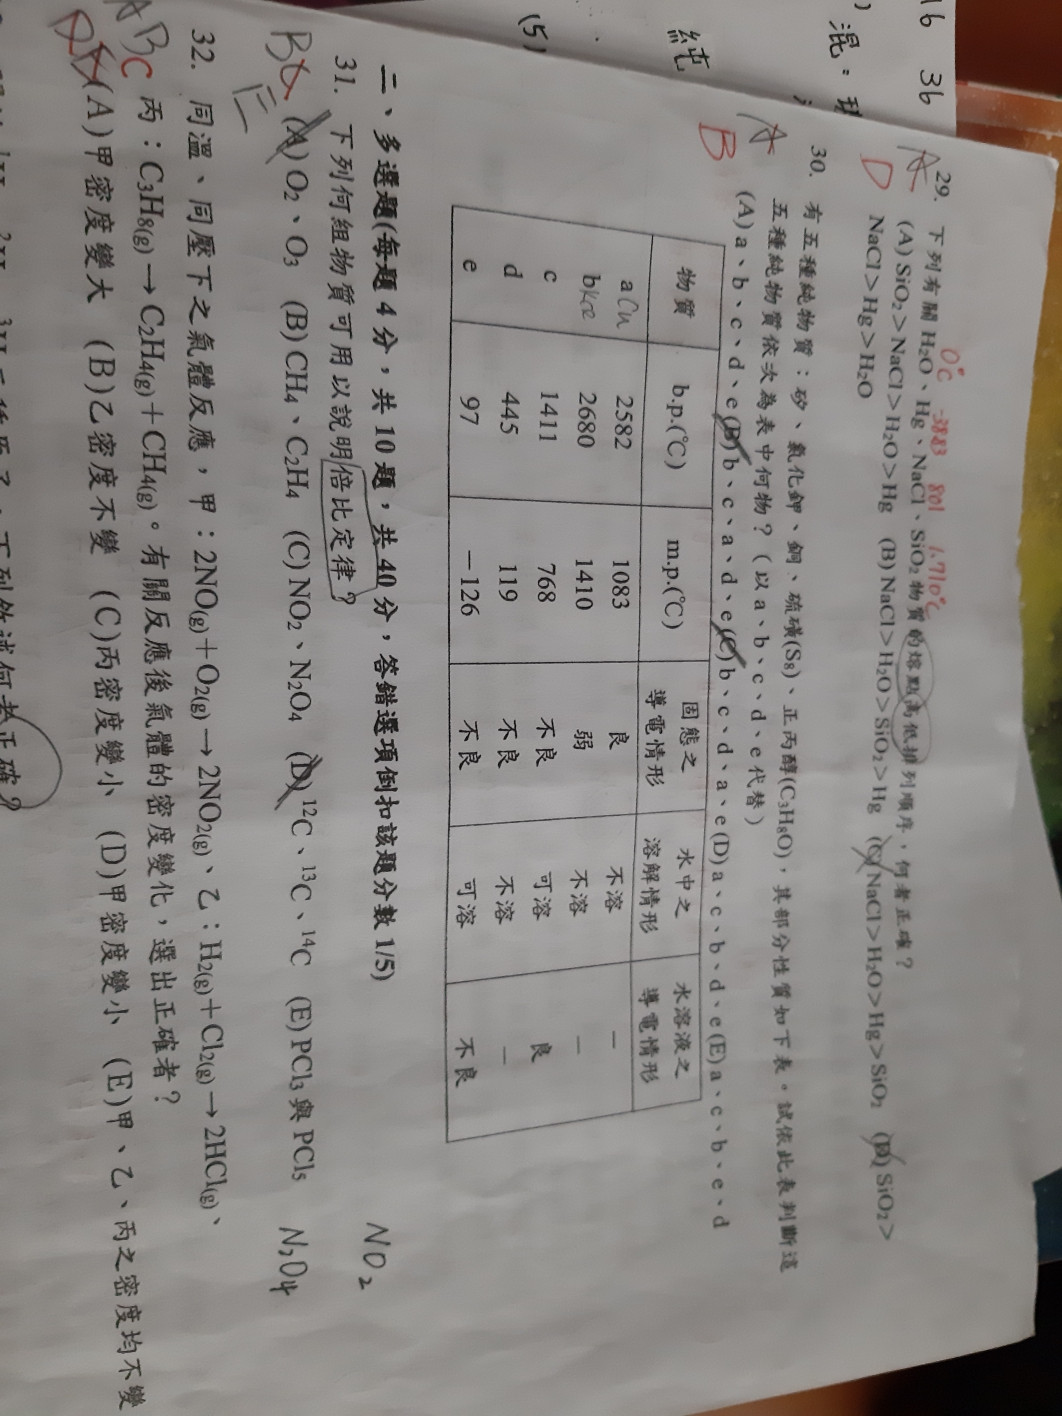 16 36
混。
純
(5)
0°C -38.83 801 1.710°C
29. 下列有關 H₂O、Hg、NaCl、SiO₂ 物質的熔點高低排列順序，何者正確？
A D
(A) SiO₂＞NaCl＞H₂O＞Hg (B) NaCl＞H₂O＞SiO₂＞Hg (C) NaCl＞H₂O＞Hg＞SiO₂ (D) SiO₂＞
NaCl＞Hg＞H₂O
30. 有五種純物質：矽、氯化鉀、銅、硫磺(S₈)、正丙醇(C₃H₈O)，其部分性質如下表。試依此表判斷這
五種純物質依次為表中何物？（以 a、b、c、d、e 代替）
A B
(A) a、b、c、d、e (B) b、c、a、d、e (C) b、c、d、a、e (D) a、c、b、d、e (E) a、c、b、e、d
物質 b.p.(℃) m.p.(℃) 固態之導電情形 水中之溶解情形 水溶液之導電情形
a Cu 2582 1083 良 不溶 —
b 2680 1410 弱 不溶 —
c 1411 768 不良 可溶 良
d 445 119 不良 不溶 —
e 97 －126 不良 可溶 不良
二、多選題(每題 4 分，共 10 題，共 40 分，答錯選項倒扣該題分數 1/5)
31. 下列何組物質可用以說明倍比定律？
NO₂
(A) O₂、O₃ (B) CH₄、C₂H₄ (C) NO₂、N₂O₄ (D) ¹²C、¹³C、¹⁴C (E) PCl₃ 與 PCl₅
N₂O₄
32. 同溫、同壓下之氣體反應，甲：2NO(g)＋O₂(g)→2NO₂(g)、乙：H₂(g)＋Cl₂(g)→2HCl(g)、
丙：C₃H₈(g)→C₂H₄(g)＋CH₄(g)。有關反應後氣體的密度變化，選出正確者？
(A)甲密度變大 (B)乙密度不變 (C)丙密度變小 (D)甲密度變小 (E)甲、乙、丙之密度均不變
下列敘述何者正確？